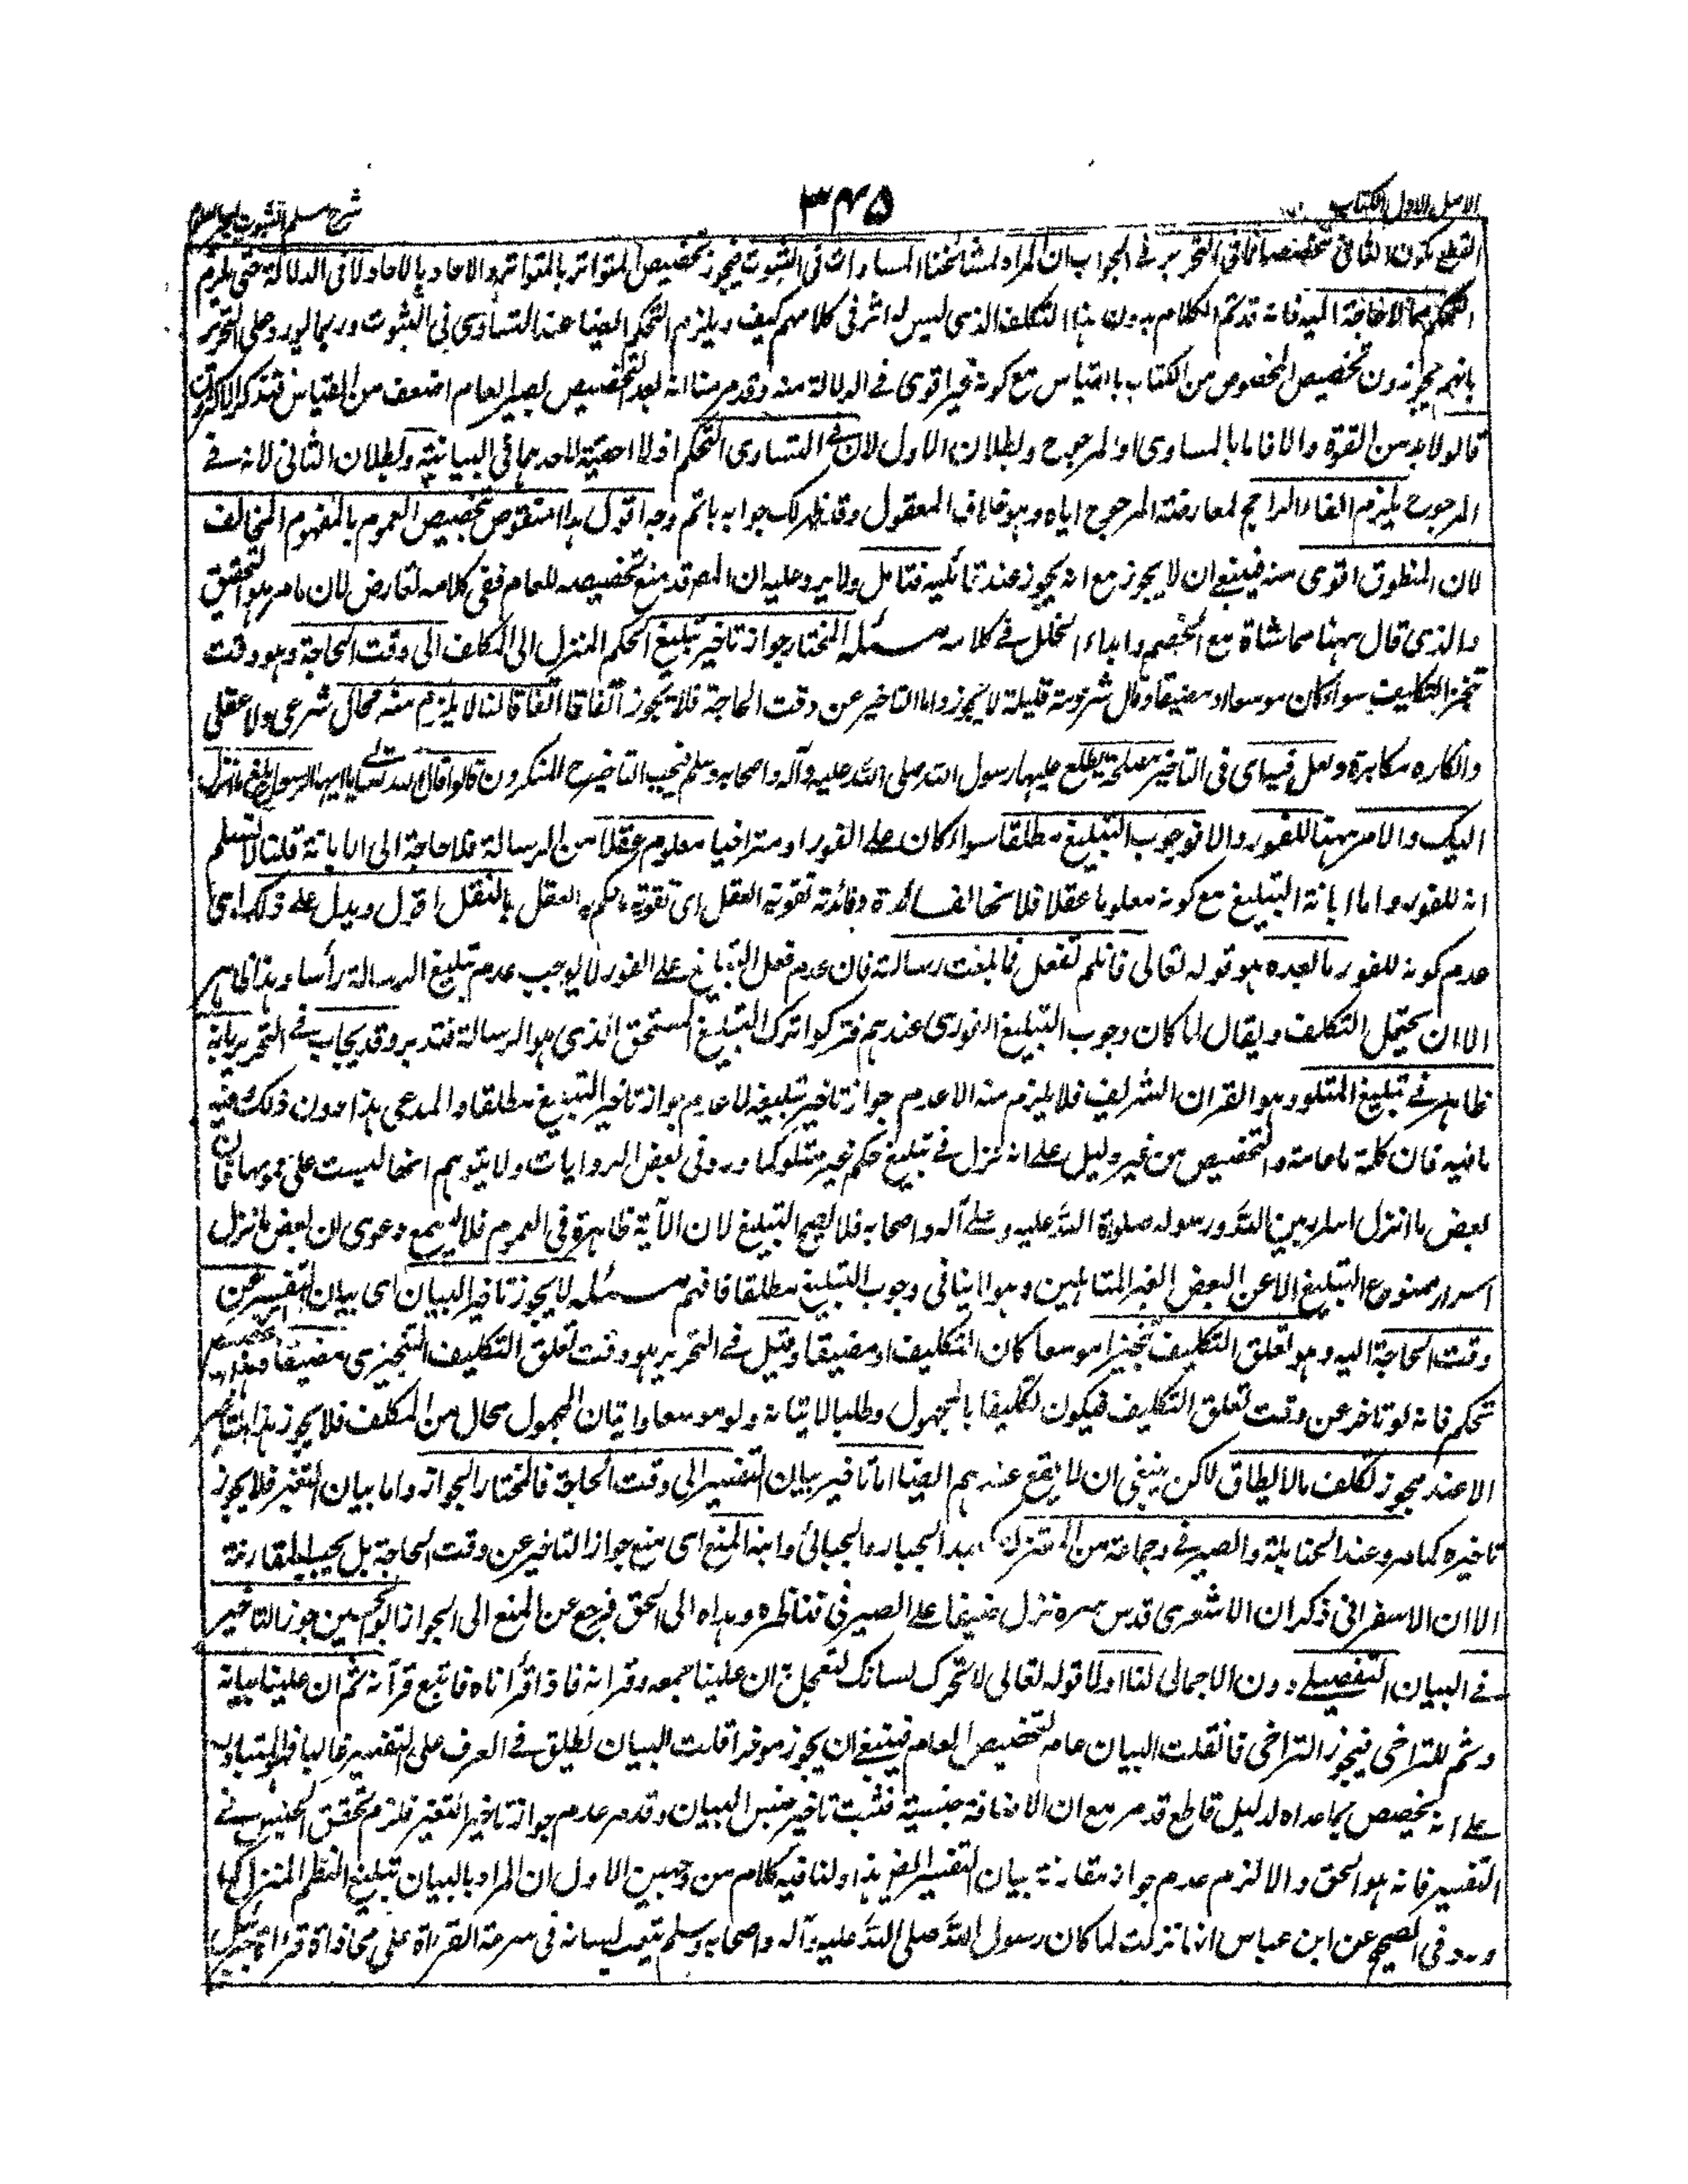 الاصل الاول الكتاب
٣٤٥
شرح مسلم الثبوت لبحر العلوم
القطع بكون الثانى مخصصا فما فى التحرير فى الجواب ان المراد لمشائخنا المساوات فى الثبوت فيجوز تخصيص المتواتر بالمتواتر والاحاد بالاحاد ولا فى الدلالة حتى يلزم
التحكم مما لا حاجة اليه فانه قد تم الكلام بدون هذا التكلف الذى ليس له اثر فى كلامهم كيف ويلزم التحكم ايضا عند التساوى فى الثبوت وربما يورد على التحرير
بانهم يجوزون تخصيص المخصوص من الكتاب بالقياس مع كونه غير اقوى فى الدلالة منه وقد مر منا انه بعد التخصيص يصير العام اضعف من القياس فتذكر الاكثرون
قالوا لا بد من القوة والا فاما بالمساوى او المرجوح وبطلان الاول لان فى التساوى التحكم اذ لا احقية لاحدهما فى البيانية وبطلان الثانى لانه فى
المرجوح يلزم الغاء الراجح لمعارضة المرجوح اياه وهو خلاف المعقول وقد ظهر لك جوابه باتم وجه اقول هذا منقوض بتخصيص العموم بالمفهوم المخالف
لان المنطوق اقوى منه فينبغى ان لا يجوز مع انه يجوز عند قائليه فتامل ولا يرد عليه ان المص قد منع تخصيصه للعام ففى كلامه تعارض لان ما مر هو التحقيق
والذى قال ههنا مماشاة مع الخصم وابداء الخلل فى كلامه مسئله المختار جواز تاخير تبليغ الحكم المنزل الى المكلف الى وقت الحاجة وهو وقت
تنجز التكليف سواء كان موسعا او مضيقا وقال شرذمة قليلة لا يجوز واما التاخير عن وقت الحاجة فلا يجوز اتفاقا اتفاقا لنا لا يلزم منه محال شرعى ولا عقلى
وانكاره مكابرة ولعل فيه اى فى التاخير مصلحة يطلع عليها رسول الله صلى الله عليه وآله واصحابه وسلم فيجب التاخير ح المنكرون قالوا قال الله تعالى يا ايها الرسول بلغ ما انزل
اليك والامر ههنا للفور والا فوجوب التبليغ مطلقا سواء كان على الفور او متراخيا معلوم عقلا من الرسالة فلا حاجة الى ابانته قلنا لا نسلم
انه للفور واما ابانة التبليغ مع كونه معلوما عقلا فلانها لفائدة وفائدته تقوية العقل اى تقوية ما حكم به العقل بالنقل اقول ويدل على ذلك اى
عدم كونه للفور ما بعده هو قوله تعالى فان لم تفعل فما بلغت رسالته فان عدم فعل التبليغ على الفور لا يوجب عدم تبليغ الرسالة رأسا وهذا ظاهر
الا ان يحتمل التكلف ويقال لما كان وجوب التبليغ الفورى عندهم فتركوا ترك التبليغ المستحق الذى هو الرسالة فتدبر وقد يجاب فى التحرير بانه
ظاهر فى تبليغ المتلو وهو القران الشريف فلا يلزم منه الا عدم جواز تاخير تبليغه لا عدم جواز تاخير التبليغ مطلقا والمدعى هذا دون ذلك فيه
ما فيه فان كلمة ما عامة والتخصيص من غير دليل على انه نزل فى تبليغ حكم غير متلو كما ورد فى بعض الروايات ولا يتوهم انها ليست على عمومها فان
بعض ما انزل اسرار بين الله ورسوله صلوة الله عليه وعلى آله واصحابه فلا يصح التبليغ لان الآية ظاهرة فى العموم فلا يسمع دعوى ان بعض ما نزل
اسرار ممنوع التبليغ الا عن البعض الغير المتاهلين وهو لا ينافى وجوب التبليغ مطلقا فافهم مسئله لا يجوز تاخير البيان اى بيان التفسير عن
وقت الحاجة اليه وهو تعلق التكليف تنجيزا موسعا كان التكليف او مضيقا وقيل فى التحرير هو وقت تعلق التكليف التنجيزى مضيقا وهذا تخصيص
تحكم فانه لو تاخر عن وقت تعلق التكليف فيكون تكليفا بالمجهول وطلبا لاتيانه ولو موسعا واتيان المجهول محال من المكلف فلا يجوز هذا التاخير
الا عند مجوز تكلف ما لا يطاق لاكن ينبغى ان لا يقع عندهم ايضا اما تاخير بيان التفسير الى وقت الحاجة فالمختار الجواز واما بيان التغير فلا يجوز
تاخيره كما مر وعند الحنابلة والصيرفى وجماعة من المعتزلة كعبد الجبار والجبائى وابنه المنع اى منع جواز التاخير عن وقت الحاجة بل يجب المقارنة
الا ان الاسفرانى ذكر ان الاشعرى قدس سره نزل ضيفا على الصيرفى فناظره وهداه الى الحق فرجع عن المنع الى الجواز ابو الحسين جوز التاخير
فى البيان التفصيلى دون الاجمالى لنا اولا قوله تعالى لا تحرك لسانك لتعجل به ان علينا جمعه وقرانه فاذا قرأناه فاتبع قرآنه ثم ان علينا بيانه
وثم للتراخى فيجوز التراخى فانقلت البيان عام لتخصيص العام فينبغى ان يجوز موخرا قلت البيان يطلق فى العرف على التفسير غالبا فهو المتبادر
على انه يخصص بما عداه لدليل قاطع قد مر مع ان الاضافة جنسية فثبت تاخير جنس البيان وقد مر عدم جواز تاخير التغير فلزم تحقق الجنس فى
التفسير فانه هو الحق والا لزم عدم جواز مقارنة بيان التفسير هذا ولنا فيه كلام من وجهين الاول ان المراد بالبيان تبليغ النظم المنزل كما
ورد فى الصحيح عن ابن عباس انها نزلت لما كان رسول الله صلى الله عليه وآله واصحابه وسلم يتعب لسانه فى سرعة القراة على محاذاة قراة جبريل